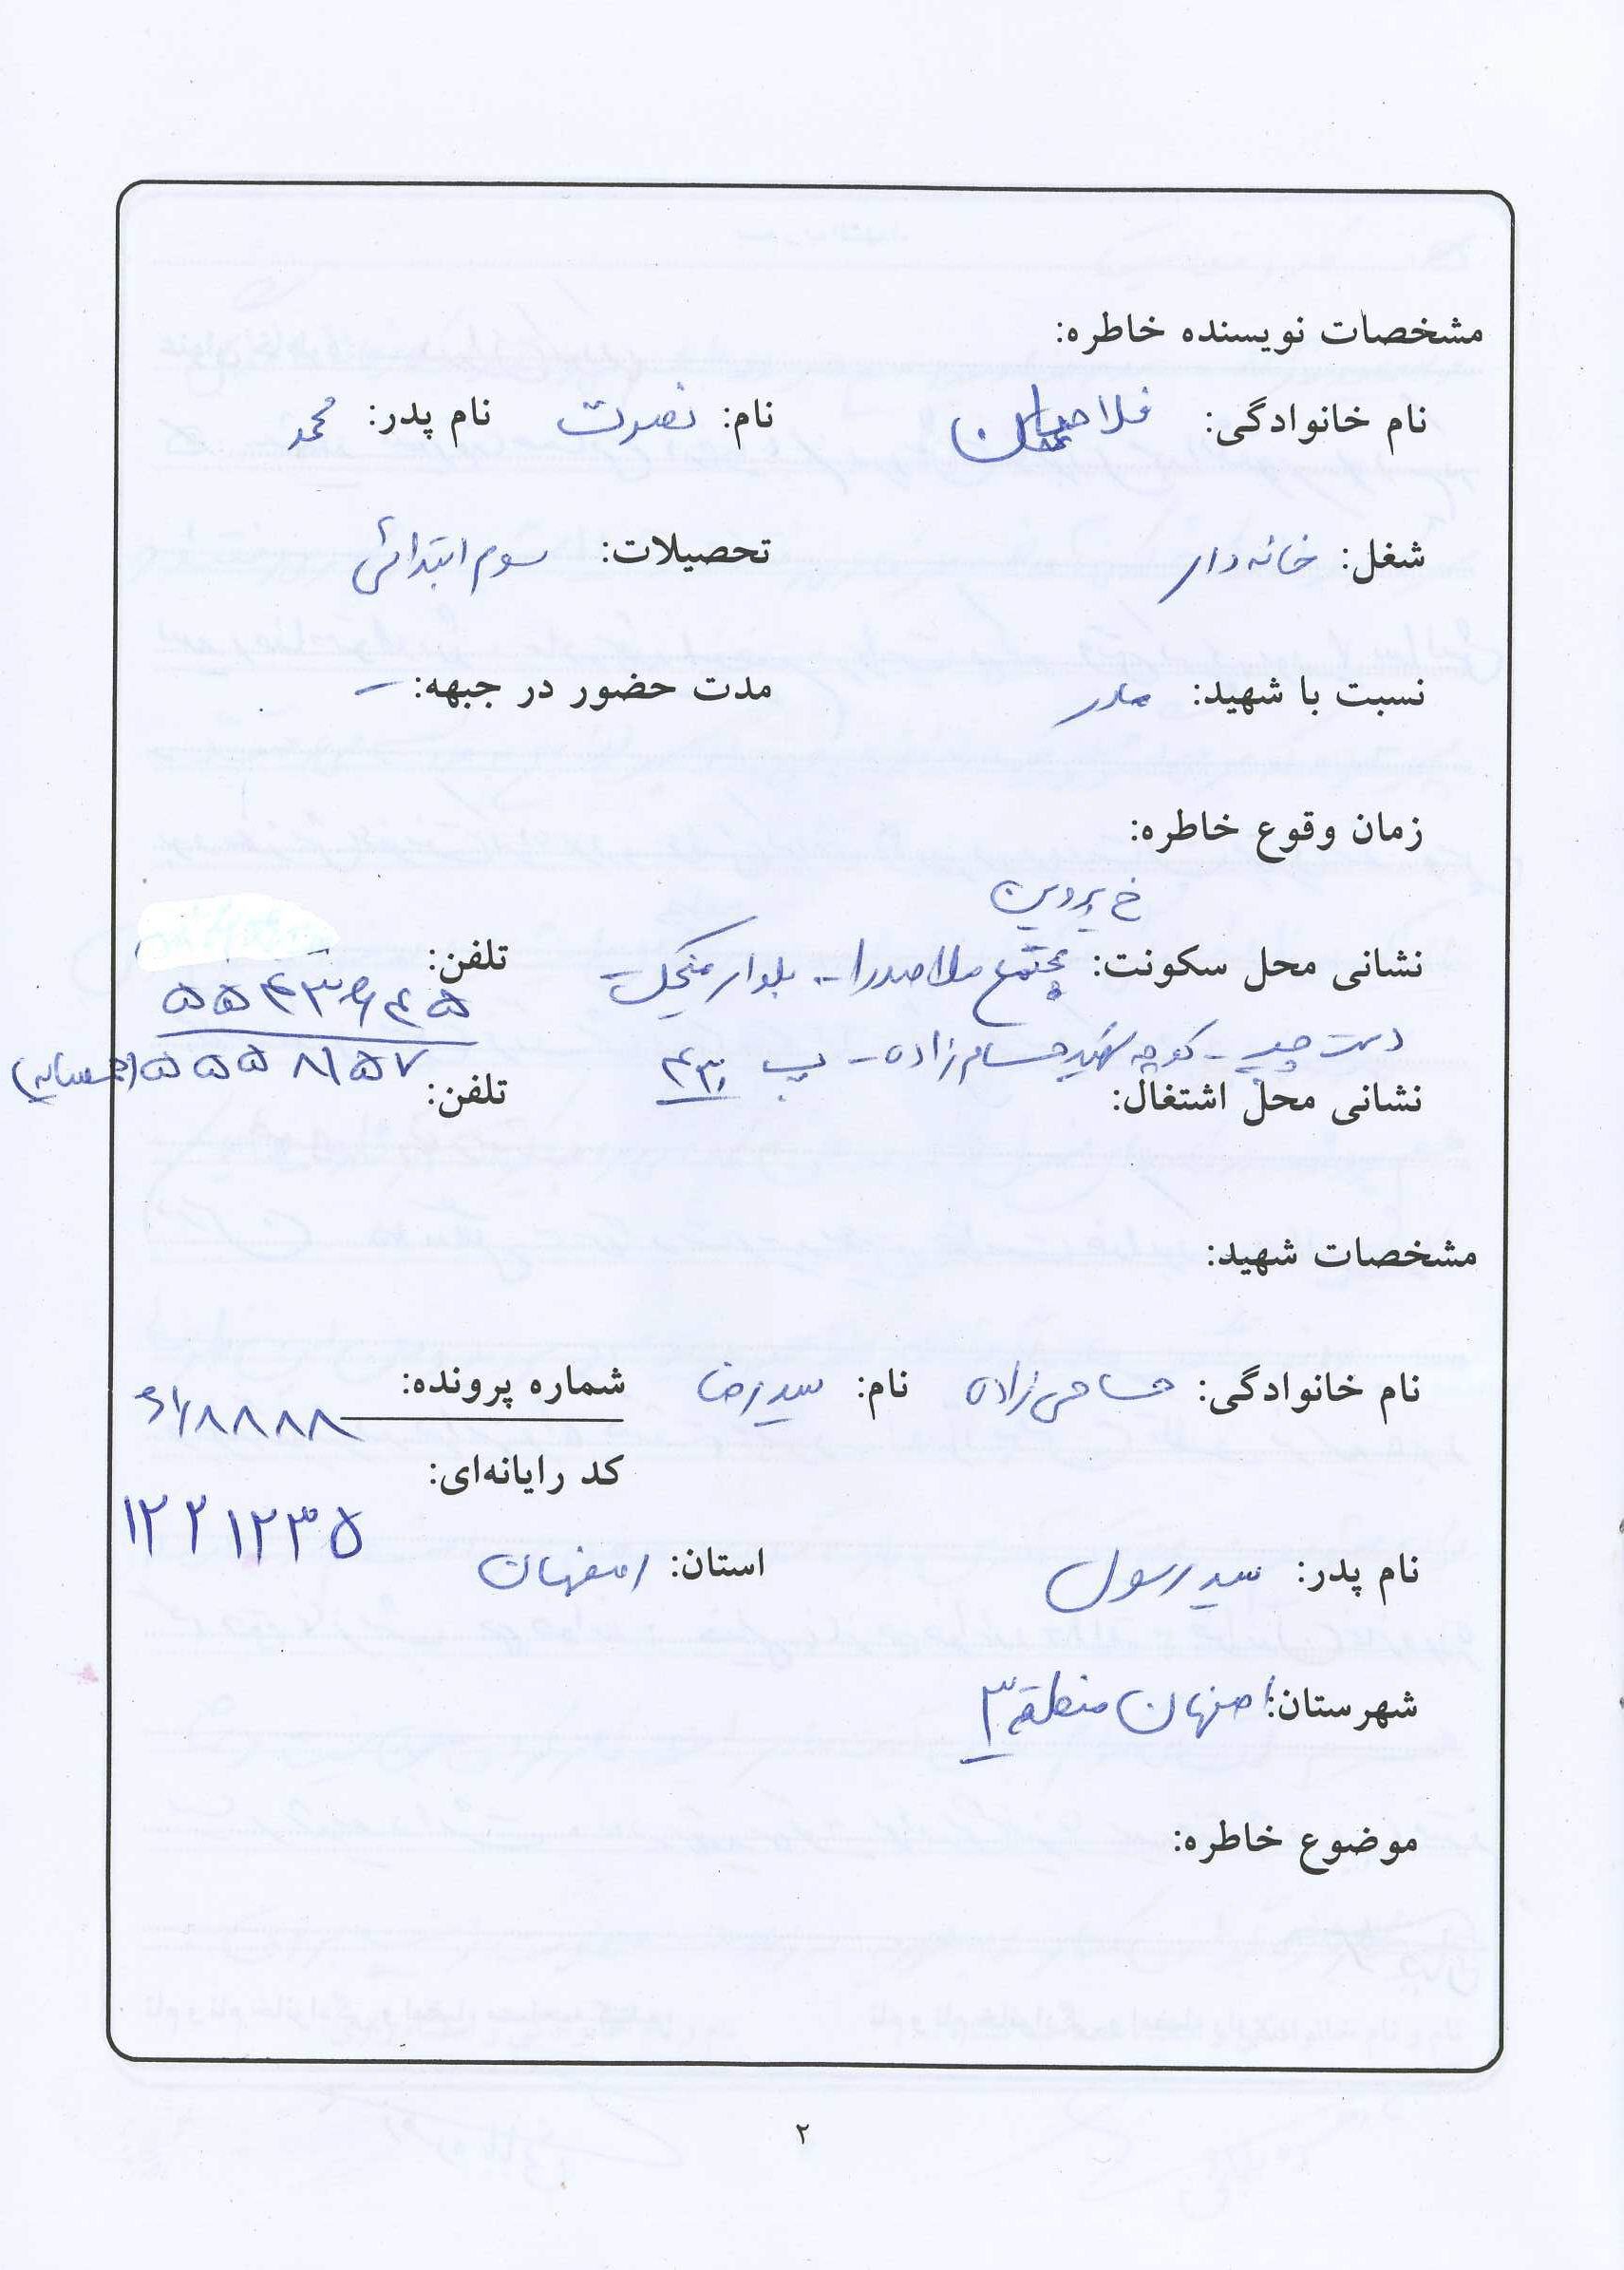 مشخصات نویسنده خاطره:
نام خانوادگی: نام: نصرت نام پدر: محمد
شغل: خانه دار تحصیلات: سوم ابتدائی
نسبت با شهید: مادر مدت حضور در جبهه: –
زمان وقوع خاطره:
خ پروین
نشانی محل سکونت: مجتمع ملاصدرا - بلوار تلفن:
دست چپ - کوچه شهید حسام زاده - پ ۵۵۴۳۶۴۵
نشانی محل اشتغال: تلفن: ۵۵۵۸۱۵۷ (همسایه)
مشخصات شهید:
نام خانوادگی: حسامی زاده نام: سیدرضا شماره پرونده:
کد رایانه‌ای:
۱۲۲۱۲۳۵
نام پدر: سید رسول استان: اصفهان
شهرستان: اصفهان منطقه ۳
موضوع خاطره:
۲